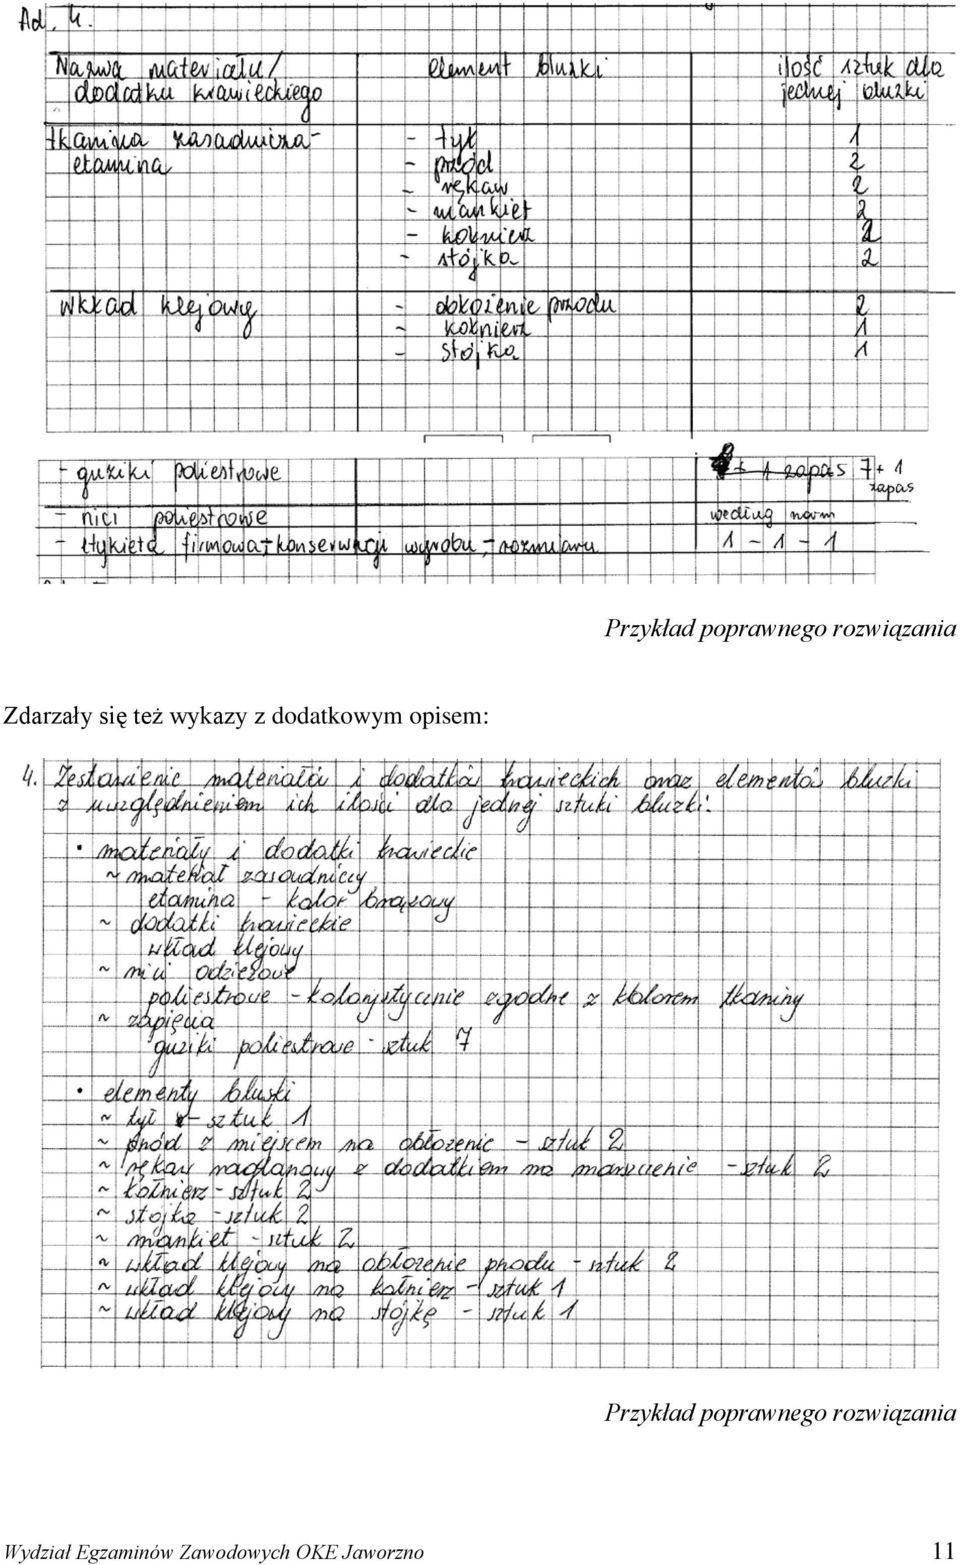 Ad. 4.
Nazwa materiału/ element bluzki ilość sztuk dla
dodatku krawieckiego jednej bluzki
tkanina zasadnicza- - tył 1
etamina - przód 2
- rękaw 2
- mankiet 2
- kołnierz 2
- stójka 2
wkład klejowy - obłożenie przodu 2
- kołnierz 1
- stójka 1
- guziki poliestrowe + 1 zapas 7 + 1
zapas
- nici poliestrowe według norm
- etykieta firmowa, - konserwacji wyrobu, - rozmiaru 1 - 1 - 1
Przykład poprawnego rozwiązania
Zdarzały się też wykazy z dodatkowym opisem:
4. Zestawienie materiałów i dodatków krawieckich oraz elementów bluzki
z uwzględnieniem ich ilości dla jednej sztuki bluzki:
• materiały i dodatki krawieckie
~ materiał zasadniczy
etamina - kolor brązowy
~ dodatki krawieckie
wkład klejowy
~ nici odzieżowe
poliestrowe - kolorystycznie zgodne z kolorem tkaniny
~ zapięcia
guziki poliestrowe - sztuk 7
• elementy bluski
~ tył - sztuk 1
~ przód z miejscem na obłożenie - sztuk 2
~ rękaw raglanowy z dodatkiem na marszczenie - sztuk 2
~ kołnierz - sztuk 2
~ stojka - sztuk 2
~ mankiet - sztuk 2
~ wkład klejowy na obłożenie przodu - sztuk 2
~ wkład klejowy na kołnierz - sztuk 1
~ wkład klejowy na stójkę - sztuk 1
Przykład poprawnego rozwiązania
Wydział Egzaminów Zawodowych OKE Jaworzno 11